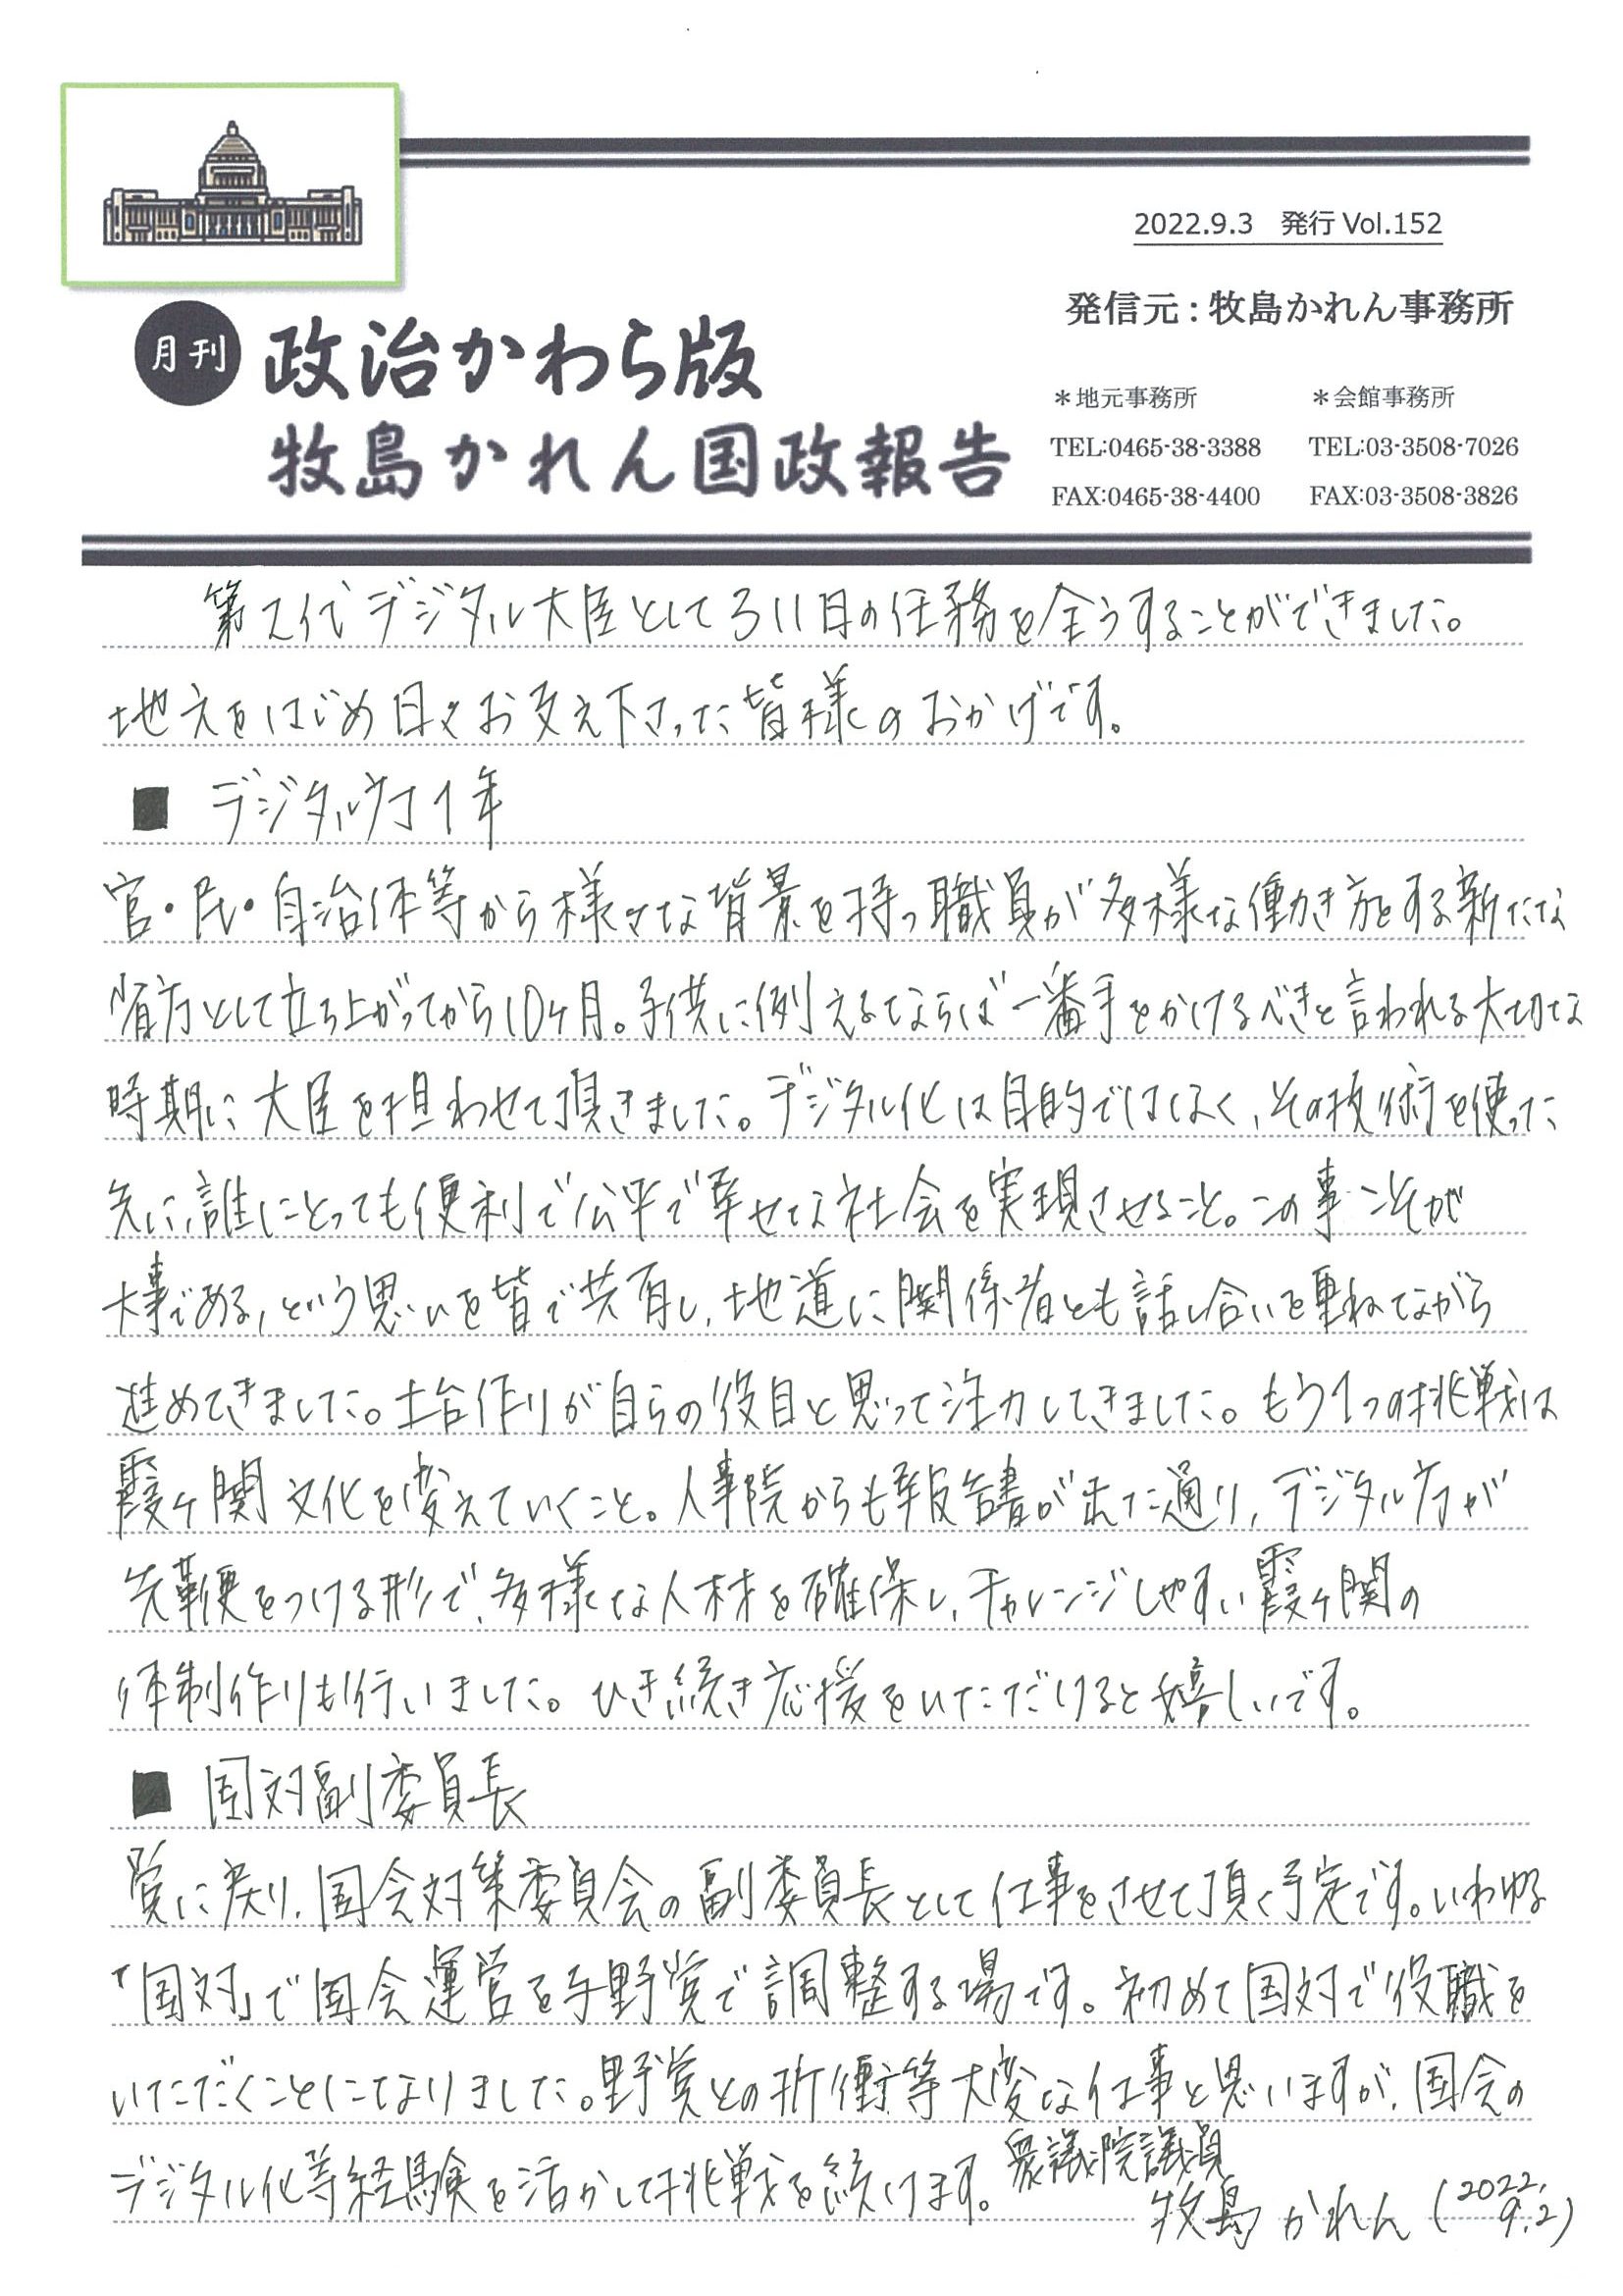 2022.9.3 発行 Vol.152
発信元 : 牧島かれん事務所
月刊 政治かわら版
牧島かれん国政報告
＊地元事務所 ＊会館事務所
TEL:0465-38-3388 TEL:03-3508-7026
FAX:0465-38-4400 FAX:03-3508-3826
第2代デジタル大臣として311日の任務を全うすることができました。
地元をはじめ日々お支え下さった皆様のおかげです。
■ デジタル庁1年
官・民・自治体等から様々な背景を持つ職員が多様な働き方をする新たな
省庁として立ち上がってから10ヶ月。子供に例えるならば一番手をかけるべきと言われる大切な
時期に大臣を担わせて頂きました。デジタル化は目的ではなく、その技術を使った
先に、誰にとっても便利で公平で幸せな社会を実現させること。この事こそが
大事である、という思いを皆で共有し、地道に関係者とも話し合いを重ねながら
進めてきました。土台作りが自らの役目と思って注力してきました。もう1つの挑戦は
霞ヶ関文化を変えていくこと。人事院からも報告書が出た通り、デジタル庁が
先鞭をつける形で、多様な人材を確保し、チャレンジしやすい霞ヶ関の
体制作りも行いました。ひき続き応援をいただけると嬉しいです。
■ 国対副委員長
党に戻り、国会対策委員会の副委員長として仕事をさせて頂く予定です。いわゆる
「国対」で国会運営を与野党で調整する場です。初めて国対で役職を
いただくことになりました。野党との折衝等大変な仕事と思いますが、国会の
デジタル化等経験を活かして挑戦を続けます。衆議院議員
牧島かれん (2022.9.2)